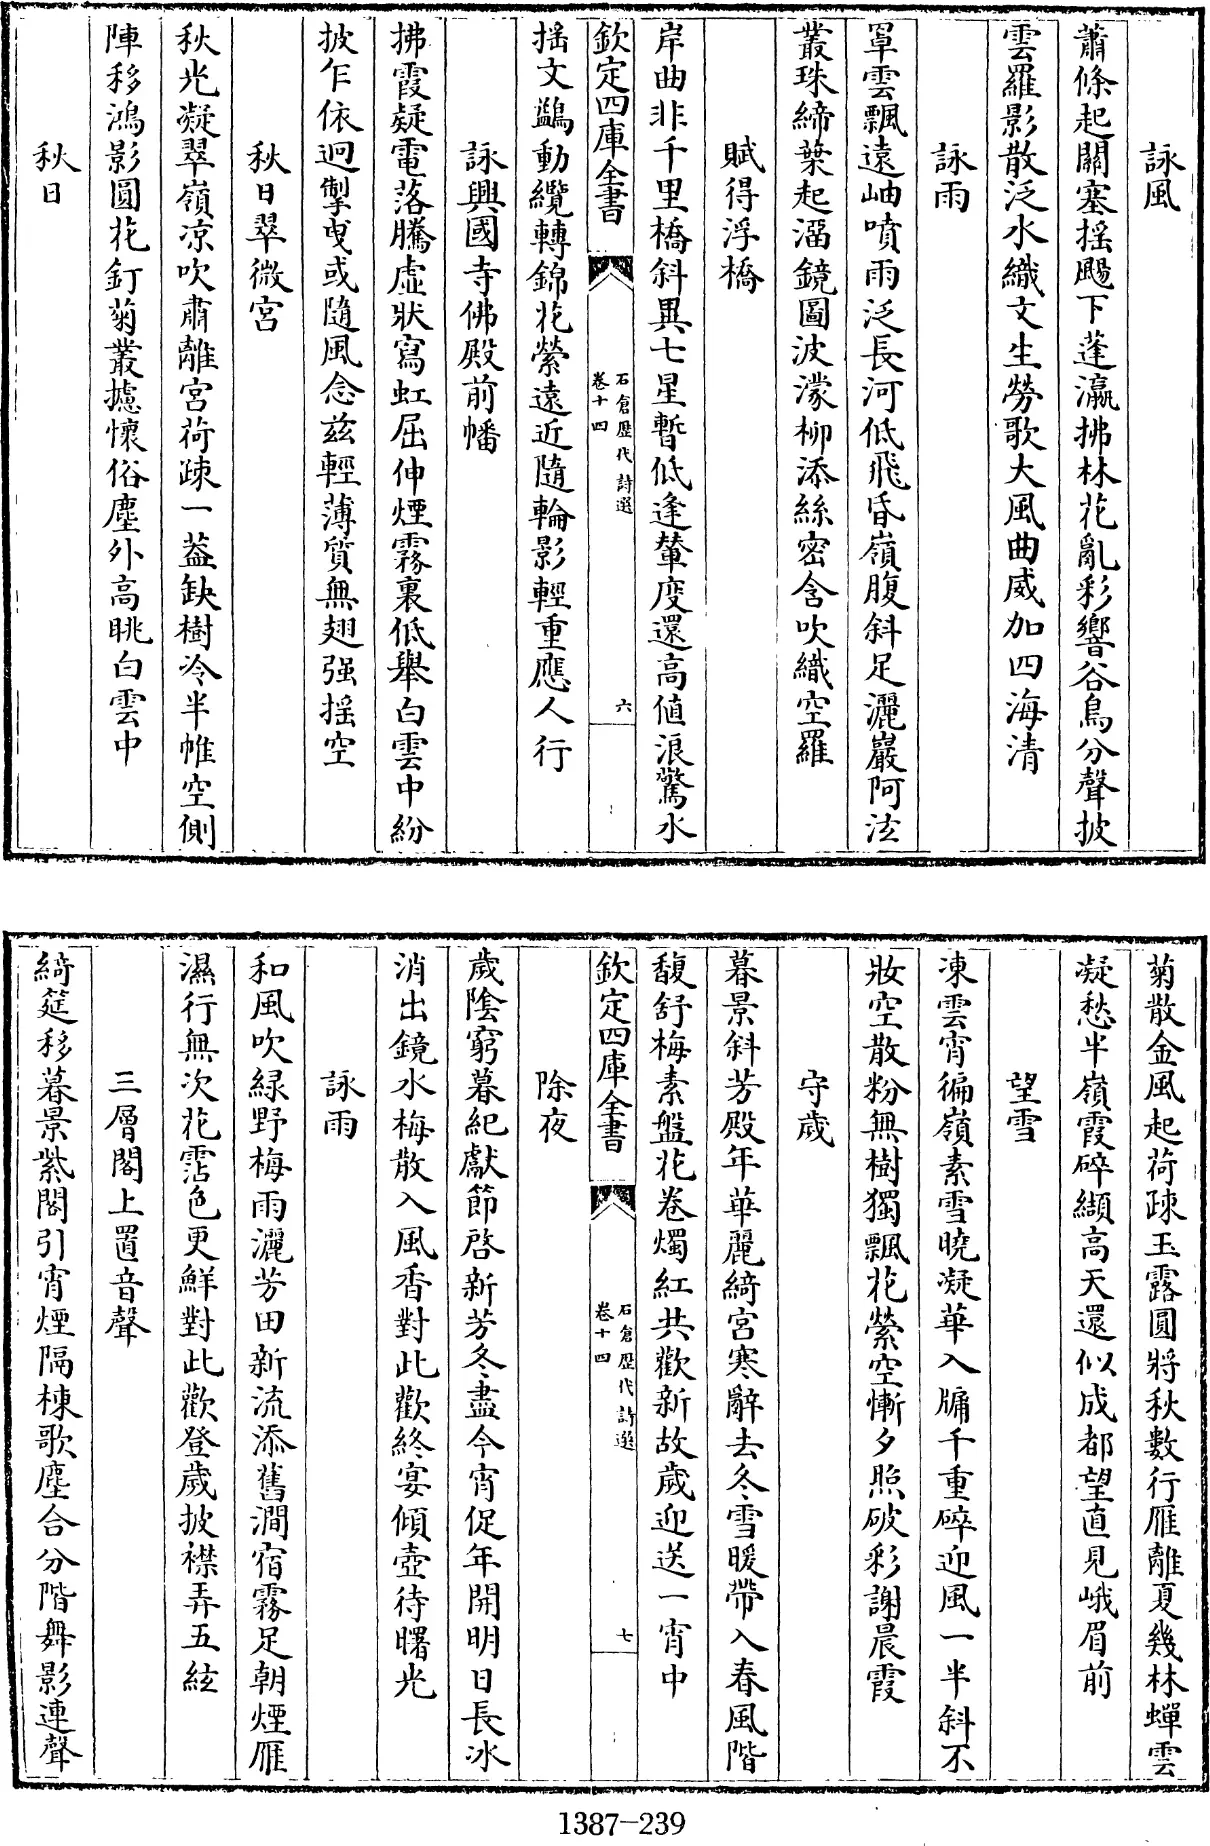 詠風
蕭條起關塞揺颺下蓬瀛拂林花亂彩響谷鳥分聲披
雲羅影散泛水織文生勞歌大風曲威加四海清
詠雨
罩雲飄遠岫噴雨泛長河低飛昏嶺腹斜足灑巖阿泫
叢珠締葉起溜鏡圖波濛柳添絲密含吹織空羅
賦得浮橋
岸曲非千里橋斜異七星暫低逢輦度還高值浪驚水
欽定四庫全書
石倉歷代詩選
卷十四
六
揺文鷁動纜轉錦花縈遠近隨輪影輕重應人行
詠興國寺佛殿前幡
拂霞疑電落騰虛狀寫虹屈伸煙霧裏低舉白雲中紛
披乍依迥掣曵或隨風念茲輕薄質無翅强揺空
秋日翠微宮
秋光凝翠嶺凉吹肅離宮荷疎一葢缺樹冷半帷空側
陣移鴻影圓花釘菊叢攄懷俗塵外高眺白雲中
秋日
菊散金風起荷疎玉露圓將秋數行雁離夏幾林蟬雲
凝愁半嶺霞碎纈高天還似成都望直見峨眉前
望雪
凍雲宵徧嶺素雪曉凝華入牖千重碎迎風一半斜不
妝空散粉無樹獨飄花縈空慚夕照破彩謝晨霞
守歲
暮景斜芳殿年華麗綺宮寒辭去冬雪暖帶入春風階
馥舒梅素盤花卷燭紅共歡新故歲迎送一宵中
欽定四庫全書
石倉歷代詩選
卷十四
七
除夜
歲陰窮暮紀獻節啓新芳冬盡今宵促年開明日長冰
消出鏡水梅散入風香對此歡終宴傾壺待曙光
詠雨
和風吹緑野梅雨灑芳田新流添舊澗宿霧足朝煙雁
濕行無次花霑色更鮮對此歡登歲披襟弄五絃
三層閣上置音聲
綺筵移暮景紫閣引宵煙隔棟歌塵合分階舞影連聲
1387-239